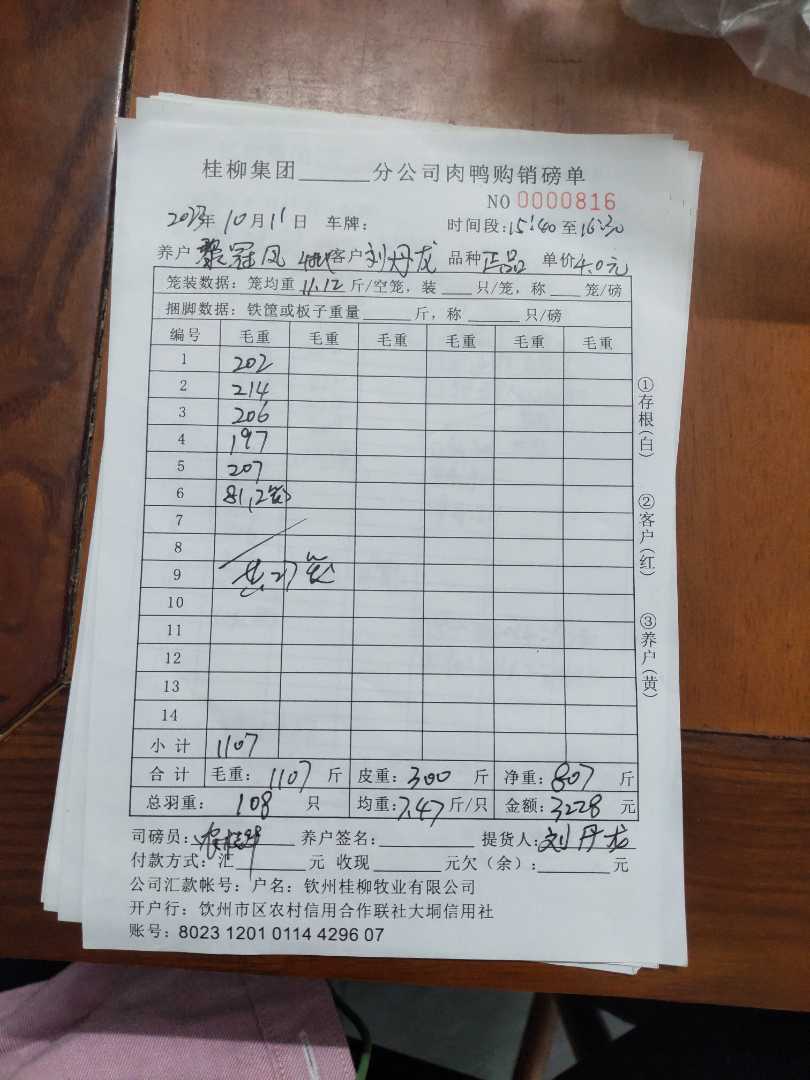 桂柳集团______分公司肉鸭购销磅单
NO 0000816
2023年10月11日 车牌: 时间段:15:40至16:30
养户 黎冠凤 客户刘丹龙 品种 正品 单价4.0元
笼装数据: 笼均重 11.12 斤/空笼, 装____只/笼, 称____笼/磅
捆脚数据: 铁筐或板子重量______斤, 称______只/磅
编号 毛重 毛重 毛重 毛重 毛重 毛重
1 202
2 214
3 206
4 197
5 207
6 81,2笼
7
8
9 共27笼
10
11
12
13
14
小计 1107
合计 毛重: 1107 斤 皮重: 300 斤 净重: 807 斤
总羽重: 108 只 均重: 7.47 斤/只 金额: 3228 元
司磅员: 养户签名:________ 提货人: 刘丹龙
付款方式: 汇______元 收现______元欠(余):______元
公司汇款帐号: 户名: 钦州桂柳牧业有限公司
开户行: 饮州市区农村信用合作联社大垌信用社
账号: 8023 1201 0114 4296 07
①存根(白)
②客户(红)
③养户(黄)